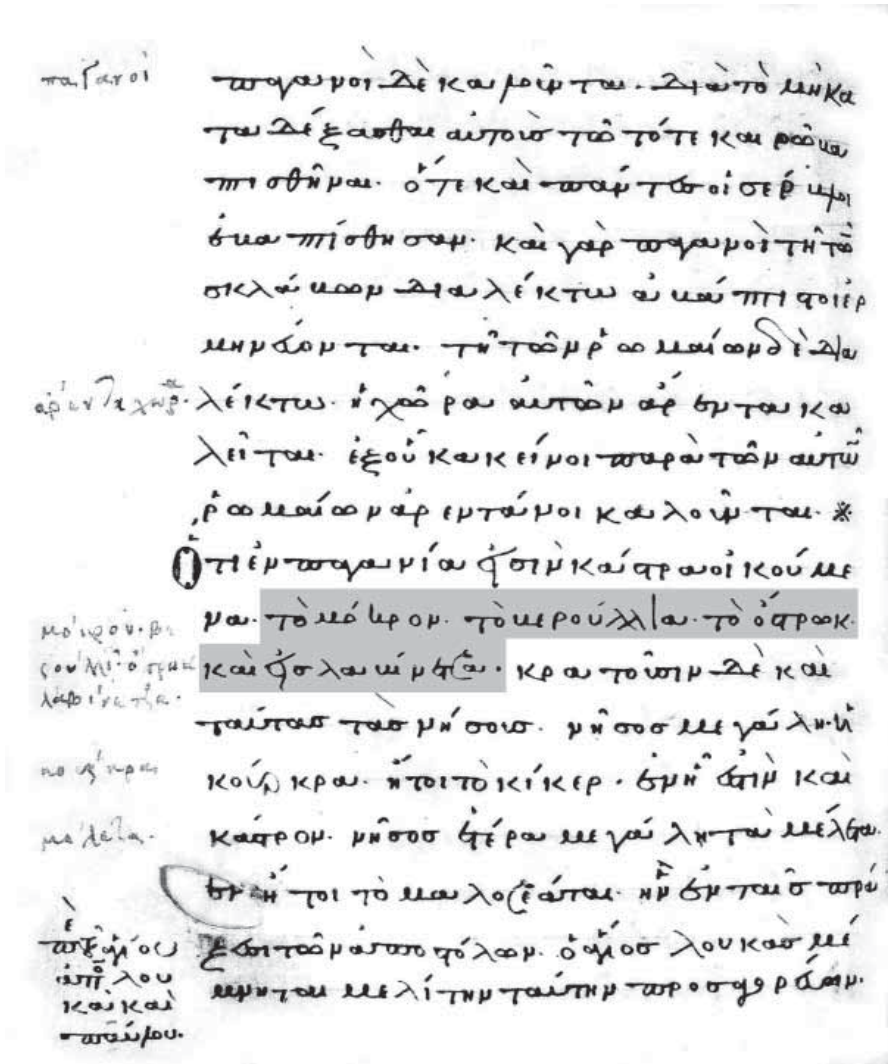 παγανοὶ
παγανοὶ δὲ καλοῦνται· διὰ τὸ μὴ κα
ταδέξασθαι αὐτοὺς τῶ τότε καιρῶ βα
πτισθῆναι· ὅτε καὶ πάντες οἱ σέρβλοι
ἐβαπτίσθησαν· καὶ γὰρ παγανοὶ τῆ τῶν
σκλάβων διαλέκτω ἀβάπτιστοι ἑρ
μηνεύονται· τῆ τῶν ῥωμαίων δὲ δια
λέκτω· ἡ χώρα αὐτῶν ἀρέντα κα
λεῖται· ἐξ οὗ κακεῖνοι παρὰ τῶν αὐτῶν
ῥωμαίων ἀρεντάνοι καλοῦνται· ※
Ὅτι ἐν παγανία εἰσὶν κάστρα οἰκούμε
να· τὸ μόκρον· τὸ βερούλλια· τὸ ὄστρωκ·
καὶ εἰσλαβίνετζα· κρατοῦσιν δὲ καὶ
ταύτας τὰς νήσους· νῆσος μεγάλη· ἡ
κούρκρα· ἤτοι τὸ κίκερ· ἐν ῆ ἐστὶν καὶ
κάστρον· νῆσος ἑτέρα μεγάλη τὰ μέλετα·
ἤτοι τὸ μαλοζεάται· ἣν ἐν ταῖς πρά
ξεσι τῶν ἀποστόλων· ὁ ἅγιος λουκὰς μέ
μνηται μελίτην ταύτην προσαγορεύων·